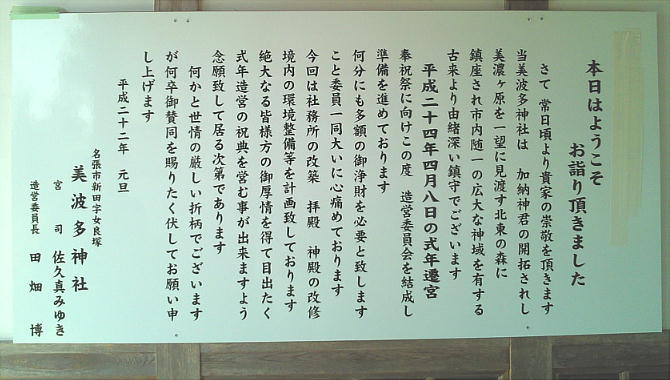 本日はようこそ
お詣り頂きました
さて 常日頃より貴家の崇敬を頂きます
当美波多神社は 加納神君の開拓されし
美濃ヶ原を一望に見渡す北東の森に
鎮座され市内随一の広大な神域を有する
古来より由緒深い鎮守でございます
平成二十四年四月八日の式年遷宮
奉祝祭に向けこの度 造営委員会を結成し
準備を進めております
何分にも多額の御浄財を必要と致します
こと委員一同大いに心痛めております
今回は社務所の改築 拝殿 神殿の改修
境内の環境整備等を計画致しております
絶大なる皆様方の御厚情を得て目出たく
式年造営の祝典を営む事が出来ますよう
念願致して居る次第であります
何かと世情の厳しい折柄でございます
が何卒御賛同を賜りたく伏してお願い申
し上げます
平成二十二年 元旦
名張市新田字女良塚
美波多神社
宮司 佐久真みゆき
造営委員長 田畑 博